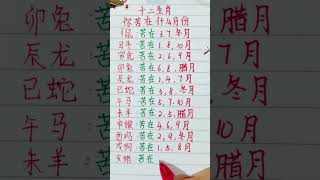 十二生肖
你苦在什么月份
子鼠:苦在3,7,冬月
丑牛:苦在1,8,10月
寅虎:苦在2,6,9月
卯兔:苦在6,8,腊月
辰龙:苦在1,4,7月
巳蛇:苦在3,8,冬月
午马:苦在5,7,10月
未羊:苦在2,5,腊月
申猴:苦在4,6,9月
酉鸡:苦在2,9,冬月
戌狗:苦在1,5,8月
亥猪:苦在
卯兔
辰龙
巳蛇
午马
未羊
腊月
7月
冬月
10月
腊月